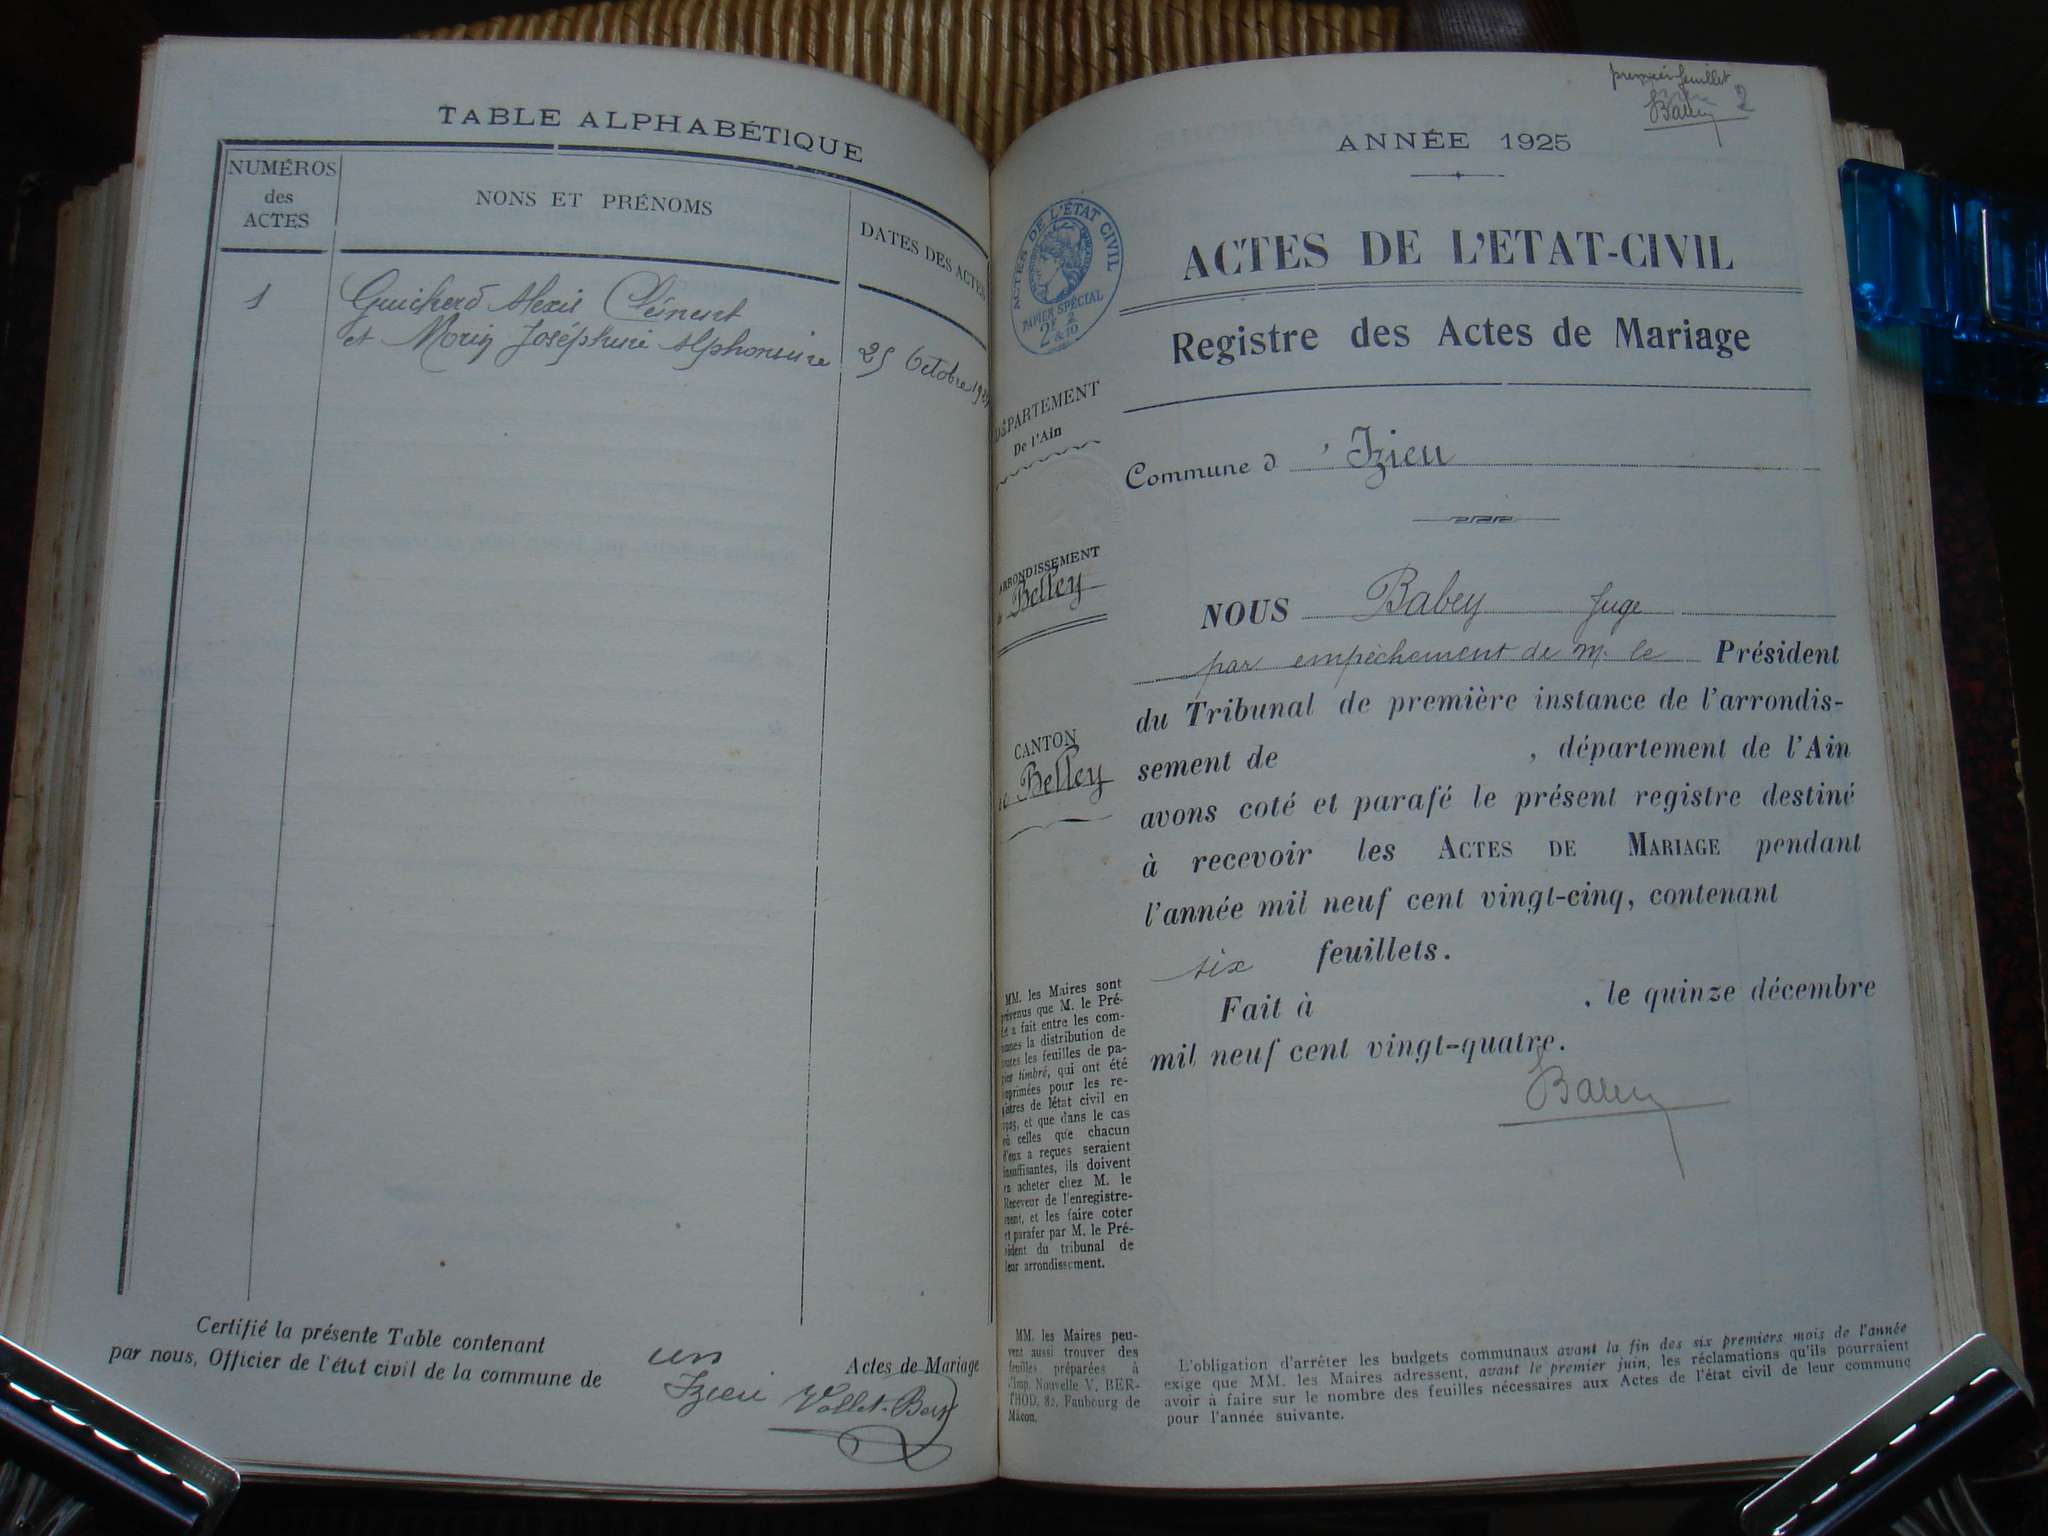 TABLE ALPHABÉTIQUE
NUMÉROS
des
ACTES
NONS ET PRÉNOMS
DATES DES ACTES
1
Guicherd Alexis Clément
et Morin Joséphine Alphonsine
25 Octobre
Certifié la présente Table contenant
un
Actes de Mariage
par nous, Officier de l'état civil de la commune de
Izieu
premier feuillet
Babey
2
ANNÉE 1925
ACTES DE L'ÉTAT CIVIL
PAPIER SPÉCIAL
ACTES DE L'ETAT-CIVIL
Registre des Actes de Mariage
DÉPARTEMENT
De l'Ain
Commune d'Izieu
ARRONDISSEMENT
de Belley
CANTON
de Belley
NOUS Babey Juge
par empêchement de M. le Président
du Tribunal de première instance de l'arrondis-
sement de , département de l'Ain
avons coté et parafé le présent registre destiné
à recevoir les ACTES DE MARIAGE pendant
l'année mil neuf cent vingt-cinq, contenant
six feuillets.
Fait à , le quinze décembre
mil neuf cent vingt-quatre.
Babey
MM. les Maires sont
prévenus que M. le Pré-
fet a fait entre les com-
munes la distribution de
toutes les feuilles de pa-
pier timbré, qui ont été
imprimées pour les re-
gistres de l'état civil en
1925, et que dans le cas
où celles que chacun
d'eux a reçues seraient
insuffisantes, ils doivent
en acheter chez M. le
Receveur de l'enregistre-
ment, et les faire coter
et parafer par M. le Pré-
sident du tribunal de
leur arrondissement.
MM. les Maires peu-
vent aussi trouver des
feuilles préparées à
l'Imp. Nouvelle V. BER-
THOD, 82, Faubourg de
Mâcon.
L'obligation d'arrêter les budgets communaux avant la fin des six premiers mois de l'année
exige que MM. les Maires adressent, avant le premier juin, les réclamations qu'ils pourraient
avoir à faire sur le nombre des feuilles nécessaires aux Actes de l'état civil de leur commune
pour l'année suivante.